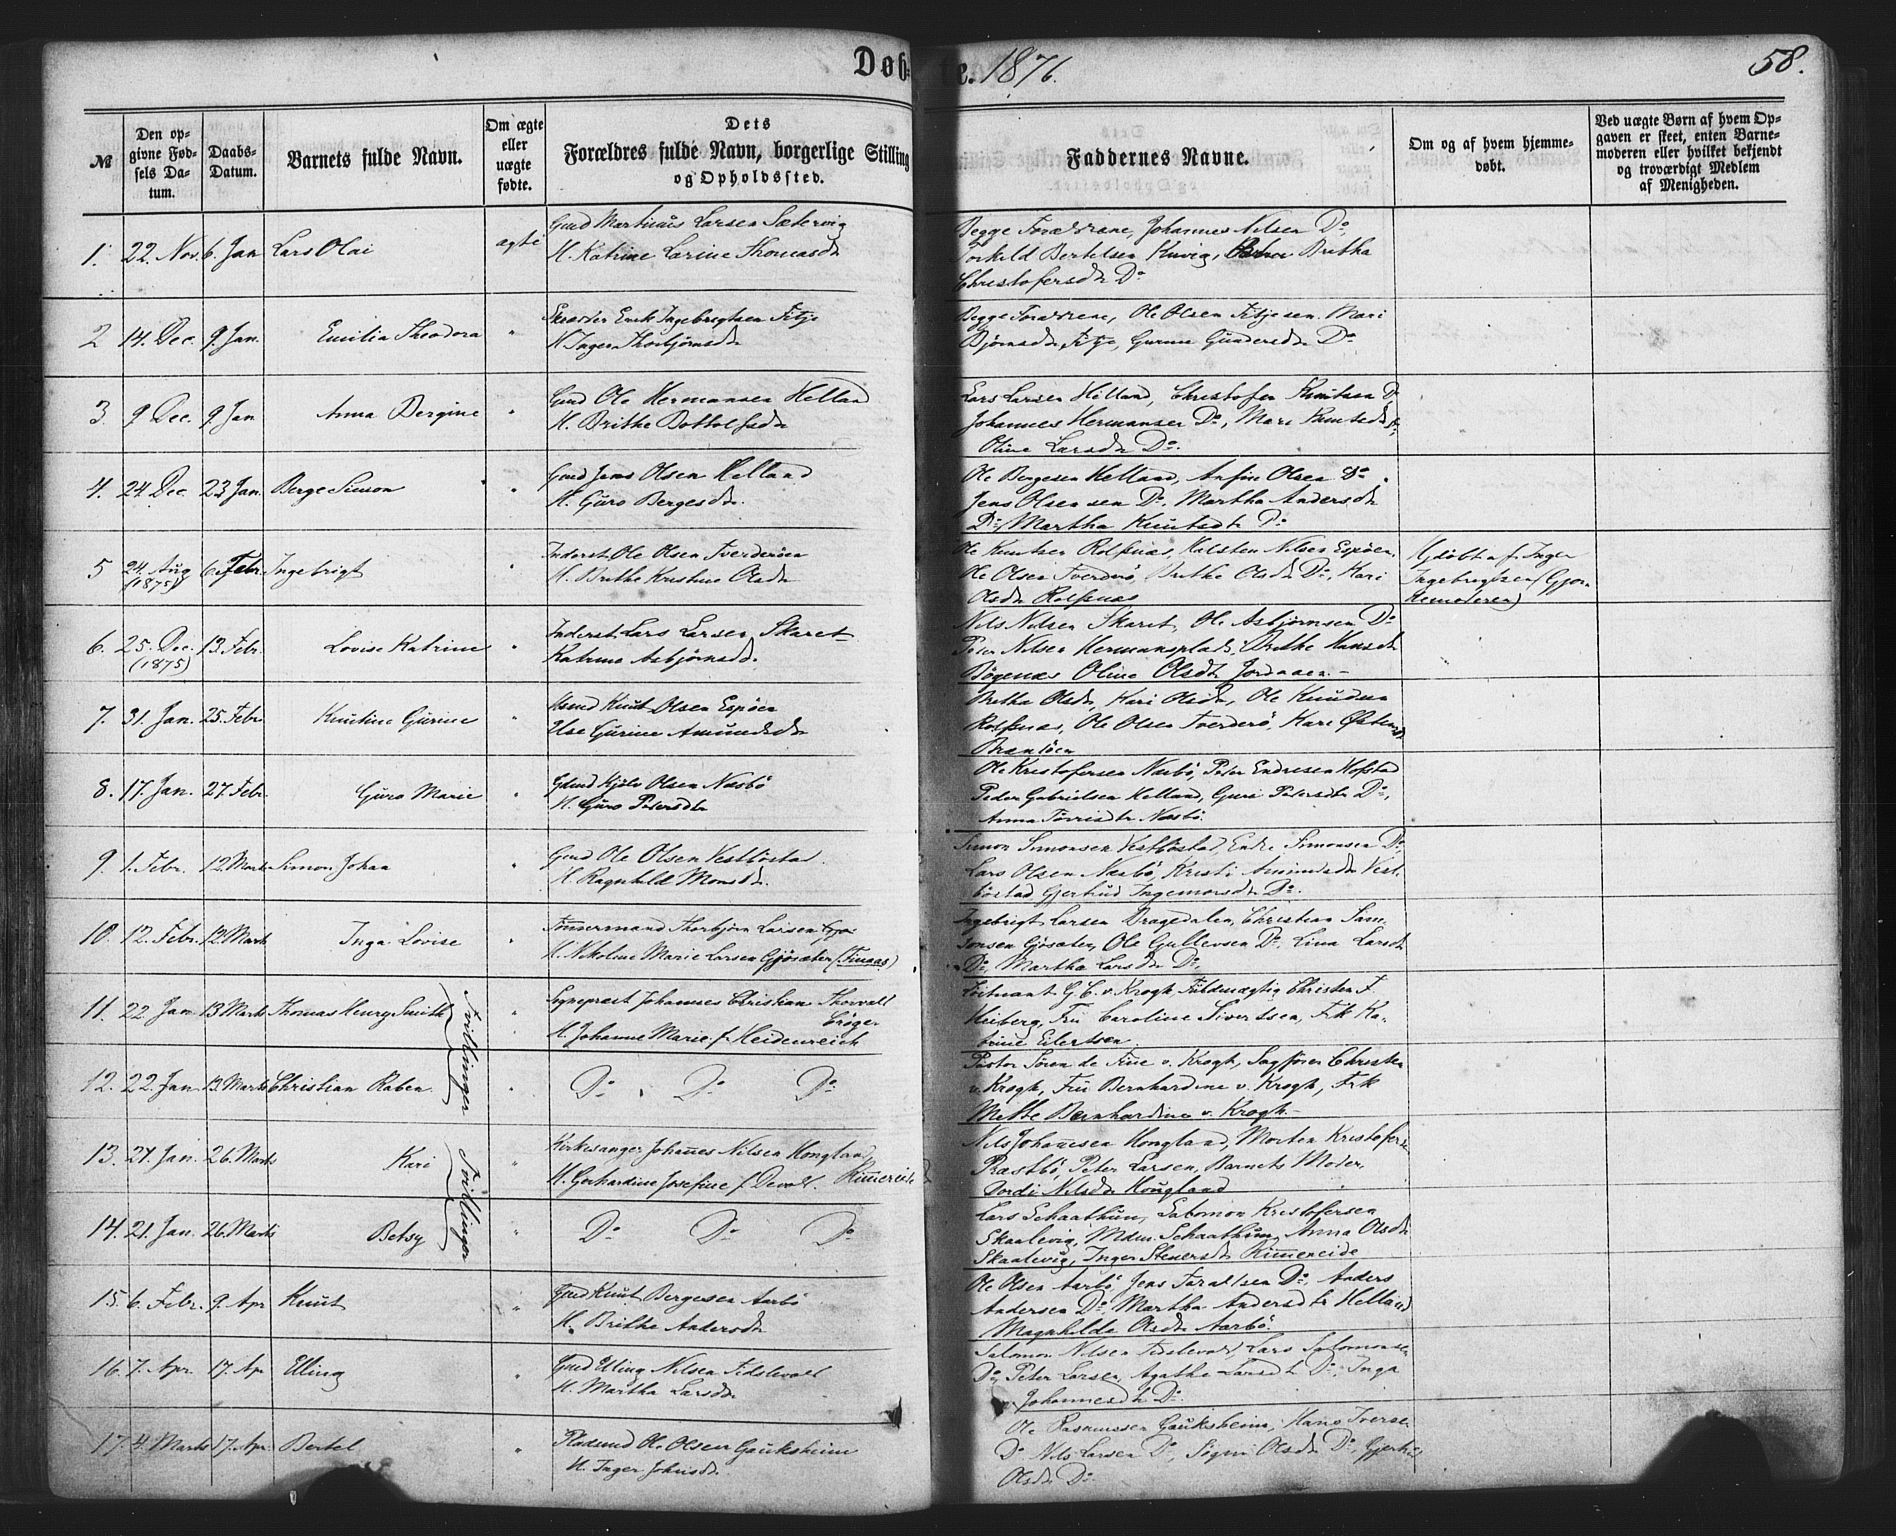 Døb=
te. 1876.
58.
№
Den op=
givne Fød=
sels Da=
tum.
Daabs=
Datum.
Barnets fulde Navn.
Om ægte
eller
uægte
fødte.
Dets
Forældres fulde Navn, borgerlige Stilling
og Opholdssted.
Faddernes Navne.
Om og af hvem hjemme=
døbt.
Ved uægte Børn af hvem Op=
gaven er skeet, enten Barne=
moderen eller hvilket bekjendt
og troværdigt Medlem
af Menigheden.
1. 22. Nov. 6. Jan Lars Olai ægte
Gmd Martinus Larsen Sætervig
H. Katrine Larine Thomasdr
Begge Forældrene, Johannes Nilsen Do,
Torkild Bertelsen Britha
Christofersdr Do
2 14. Dec. 9. Jan. Emilia Theodora "
Erik Ingebrigtsen Fitje
H. Inger Thorbjørnsdr
Begge Forældrene, Ole Olsen Mari
Bjørnsdr Fitje, Gurine Gundersdr Do
3. 9 Dec. 9 Jan Anna Bergine "
Gmd Ole Hermansen Helland
H. Brithe Bottolfsdr
Lars Larsen Helland, Christofer Knutsen Do
Johannes Hermansen Do, Mari Knutsdr Do,
Oline Larsdr Do.
4. 24. Dec. 23 Jan. Berge Simon "
Gmd Jens Olsen Helland
H. Guro Bergesdr.
Ole Bergesen Helland, Anfin Olsen Do.
Jens Olsen sen Do. Martha Andersdr
Do, Martha Knutsdr Do
5 24. Aug 6 Febr. Ingebrigt "
(1875)
Inderst Ole Olsen Tverderøen
H. Brithe Kristine Olsdr
Ole Knutsen Rolfsnæs, Halsten Nilsen Espøen,
Ole Olsen Tverderø, Brithe Olsdr Do, Kari
Olsdr Rolfsnæs
Hjdøbt af Inger
Ingebrigtsen (Gjor
demoderen)
6. 25. Dec. 13. Febr. Lovise Katrine "
(1875)
Inderst Lars Larsen Skaret
Katrine Asbjørnsdr.
Nils Nilsen Skaret, Ole Asbjørnsen Do
Peter Nilsen Hermansplads, Brithe Hansdr
Bøgenæs Oline Olsdr
7. 31. Jan. 25. Febr. Knutine Gurine "
Knut Olsen Espøen
Else Gurine Amundsdr
Britha Olsdr, Kari Olsdr, Ole Knudsen
Rolfsnæs, Ole Olsen Tverderø, Kari
8. 17. Jan. 27. Febr. Guro Marie "
Gmd Kjølv Olsen Næsbø
H. Guro Petersdr
Ole Kristofersen Næsbø, Peter Endresen Hofstad
Peder Gabrielsen Helland, Guri Petersdr Do,
Anna Næsbø.
9. 1. Febr. 12. Marts Simon Johan "
Gmd Ole Olsen Vestbøstad
H. Ragnhild Monsdr.
Simon Simonsen Vestbøstad, Endre Simonsen Do
Lars Olsen Næsbø, Kristi Amundsdr Vest
bøstad Gjertrud Ingemorsdr Do.
10. 12. Febr. 12. Marts Inga Lovise "
Tømmermand Thorbjørn Larsen
H. Nikoline Marie Larsen Gjøsæter (Finaas)
Ingebrigt Larsen Dragedalen, Christian Sam
sonsen Gjøsæter, Ole Gullevsen Do. Lina Larsdr
Do, Martha Larsdr Do.
11. 22. Jan 13 Marts Thomas Henry Smith "
Sogneprest Johannes Christian Thorvall
Crøger
H. Johanne Marie f. Heidenreich
Tvillinger
Løitnant G. C. v. Krogh, Fuldmægtig Christen F.
Heiberg, Fru Caroline Sivertsen, Frk Ka=
trine Eilertsen.
12. 22. Jan 13. Marts Christian Raben "
Do Do Do
Pastor Søren de v. Krogh, Sagfører Christen
v. Krogh, Fru Bernhardine v. Krogh, Frk
Mette Bernhardine v. Krogh.
13. 21. Jan. 26. Marts Kari "
Kirkesanger Johannes Nilsen Hougland,
H. Gerhardine Josefine f. Devold. Rimereide
Tvillinger
Nils Johannesen Hougland, Morten Kristofers
Præstbø, Peter Larsen, Barnets Moder,
Dordi Nilsdr Hougland
14. 21. Jan. 26. Marts Betsy "
Do Do Do
Lars Schaathun, Salomon Kristofersen
Skaalevig, Mdm. Schaathun, Anna Olsdr
Skaalevig, Inger Rimereide
15. 6. Febr. 9. Apr. Knut "
Gmd Knut Bergesen Aarbø
H. Brithe Andersdr
Ole Olsen Aarbø Jens Do, Anders
Andersen Do, Martha Andersdr Helland
Magnhilde Olsdr Aarbø.
16. 7. Apr. 17. Apr Elling "
Gmd Elling Nilsen Fidslevoll
H. Martha Larsdr
Salomon Nilsen Fidslevoll, Lars Salomonsen
Do, Peter Larsen, Agathe Larsdr Do, Inga
Johannesdr Do
17. 4. Marts 17. Apr. Bertel "
Pladsmd Ole Olsen Gauksheim
H. Inger Johnsdr.
Ole Rasmussen Gauksheim, Hans
Do. Nils Larsen Do, Olsdr Do,
Olsdr Do